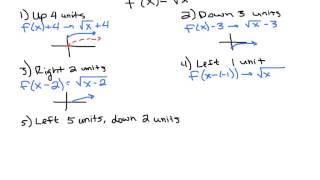 f(x)=√x
1) Up 4 units
f(x)+4 → √x+4
2) Down 3 units
f(x)-3 → √x-3
3) Right 2 units
f(x-2)=√x-2
4) Left 1 unit
f(x-(-1)) → √x
5) Left 5 units, down 2 units